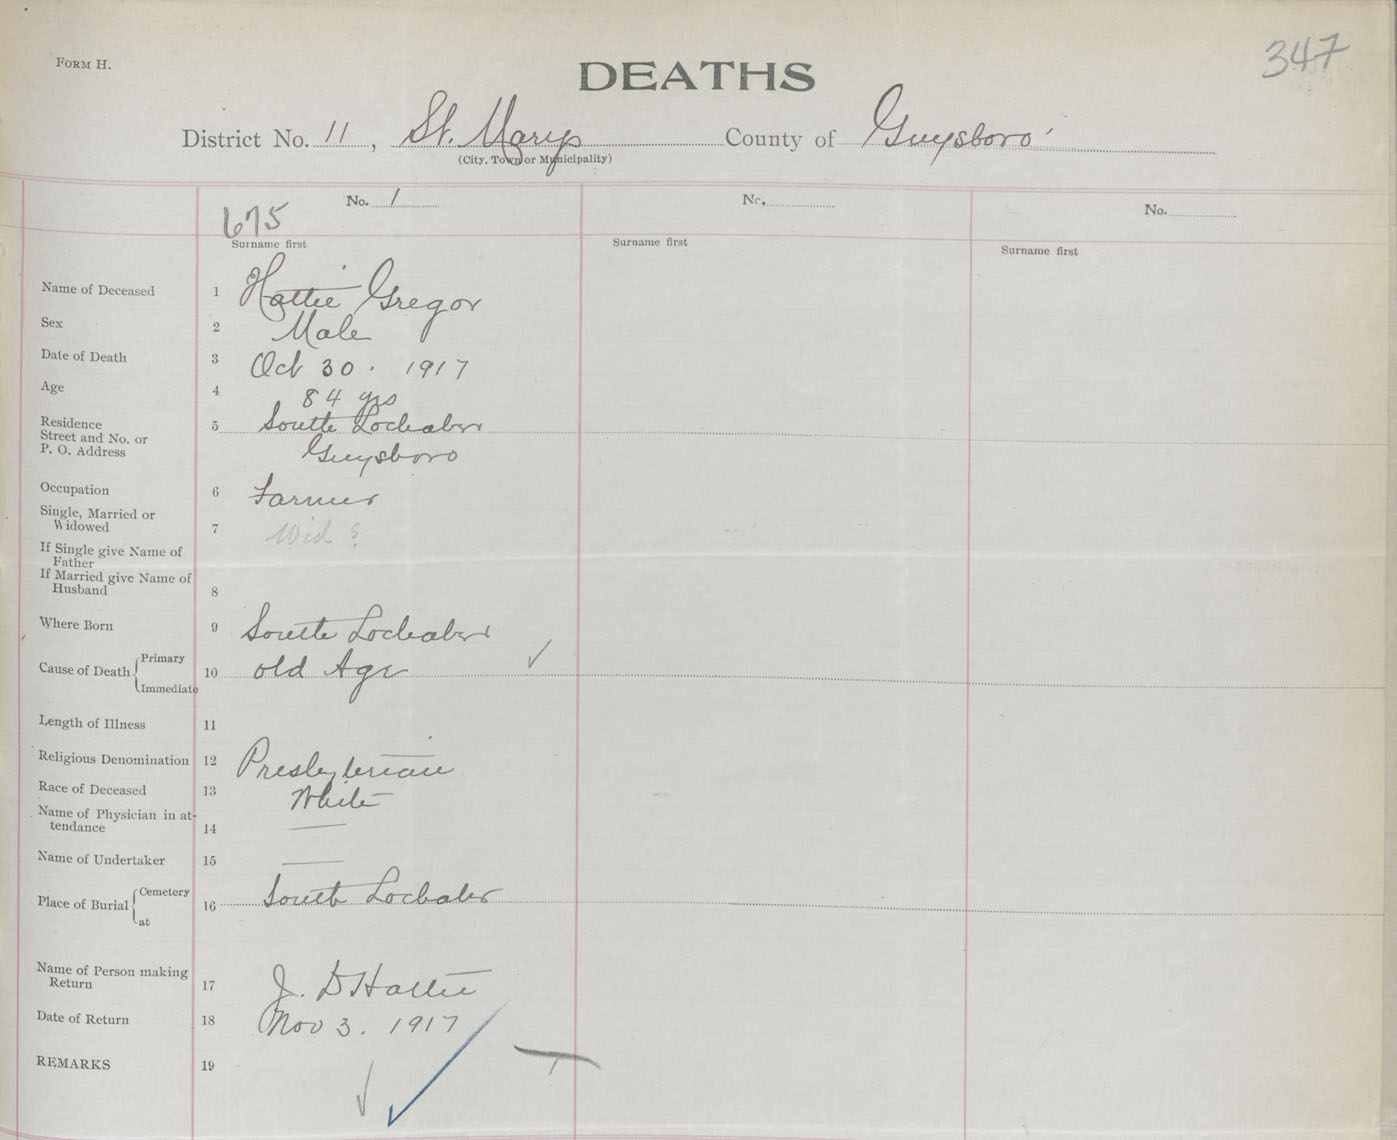 FORM H.
347
DEATHS
District No. 11, St. Marys County of Guysboro'
(City, Town or Municipality)
No. 1 No. No.
675
Surname first Surname first Surname first
Name of Deceased 1 Hattie Gregor
Sex 2 Male
Date of Death 3 Oct 30. 1917
Age 4 84 yrs
Residence 5 South Lochaber
Street and No. or
P. O. Address Guysboro
Occupation 6 Farmer
Single, Married or
Widowed 7 Wid ?
If Single give Name of
Father
If Married give Name of
Husband 8
Where Born 9 South Lochaber
Cause of Death Primary 10 old Age
Immediate
Length of Illness 11
Religious Denomination 12 Presbyterian
Race of Deceased 13 White
Name of Physician in at-
tendance 14 —
Name of Undertaker 15 —
Place of Burial Cemetery 16 South Lochaber
at
Name of Person making
Return 17 J. D Hattie
Date of Return 18 Nov 3. 1917
REMARKS 19